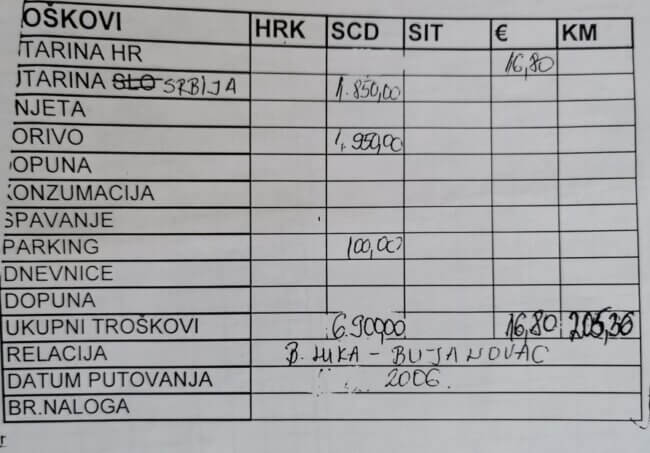 OŠKOVI HRK SCD SIT € KM
TARINA HR 16,80
UTARINA SLO SRBIJA 1.850,00
NJETA
ORIVO
OPUNA
KONZUMACIJA
SPAVANJE
PARKING 100,00
DNEVNICE
DOPUNA
UKUPNI TROŠKOVI 6.900,00 16,80 205,36
RELACIJA B. LUKA - BUJANOVAC
DATUM PUTOVANJA 2006.
BR.NALOGA